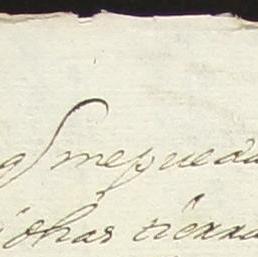 me pueda
dhas tierra